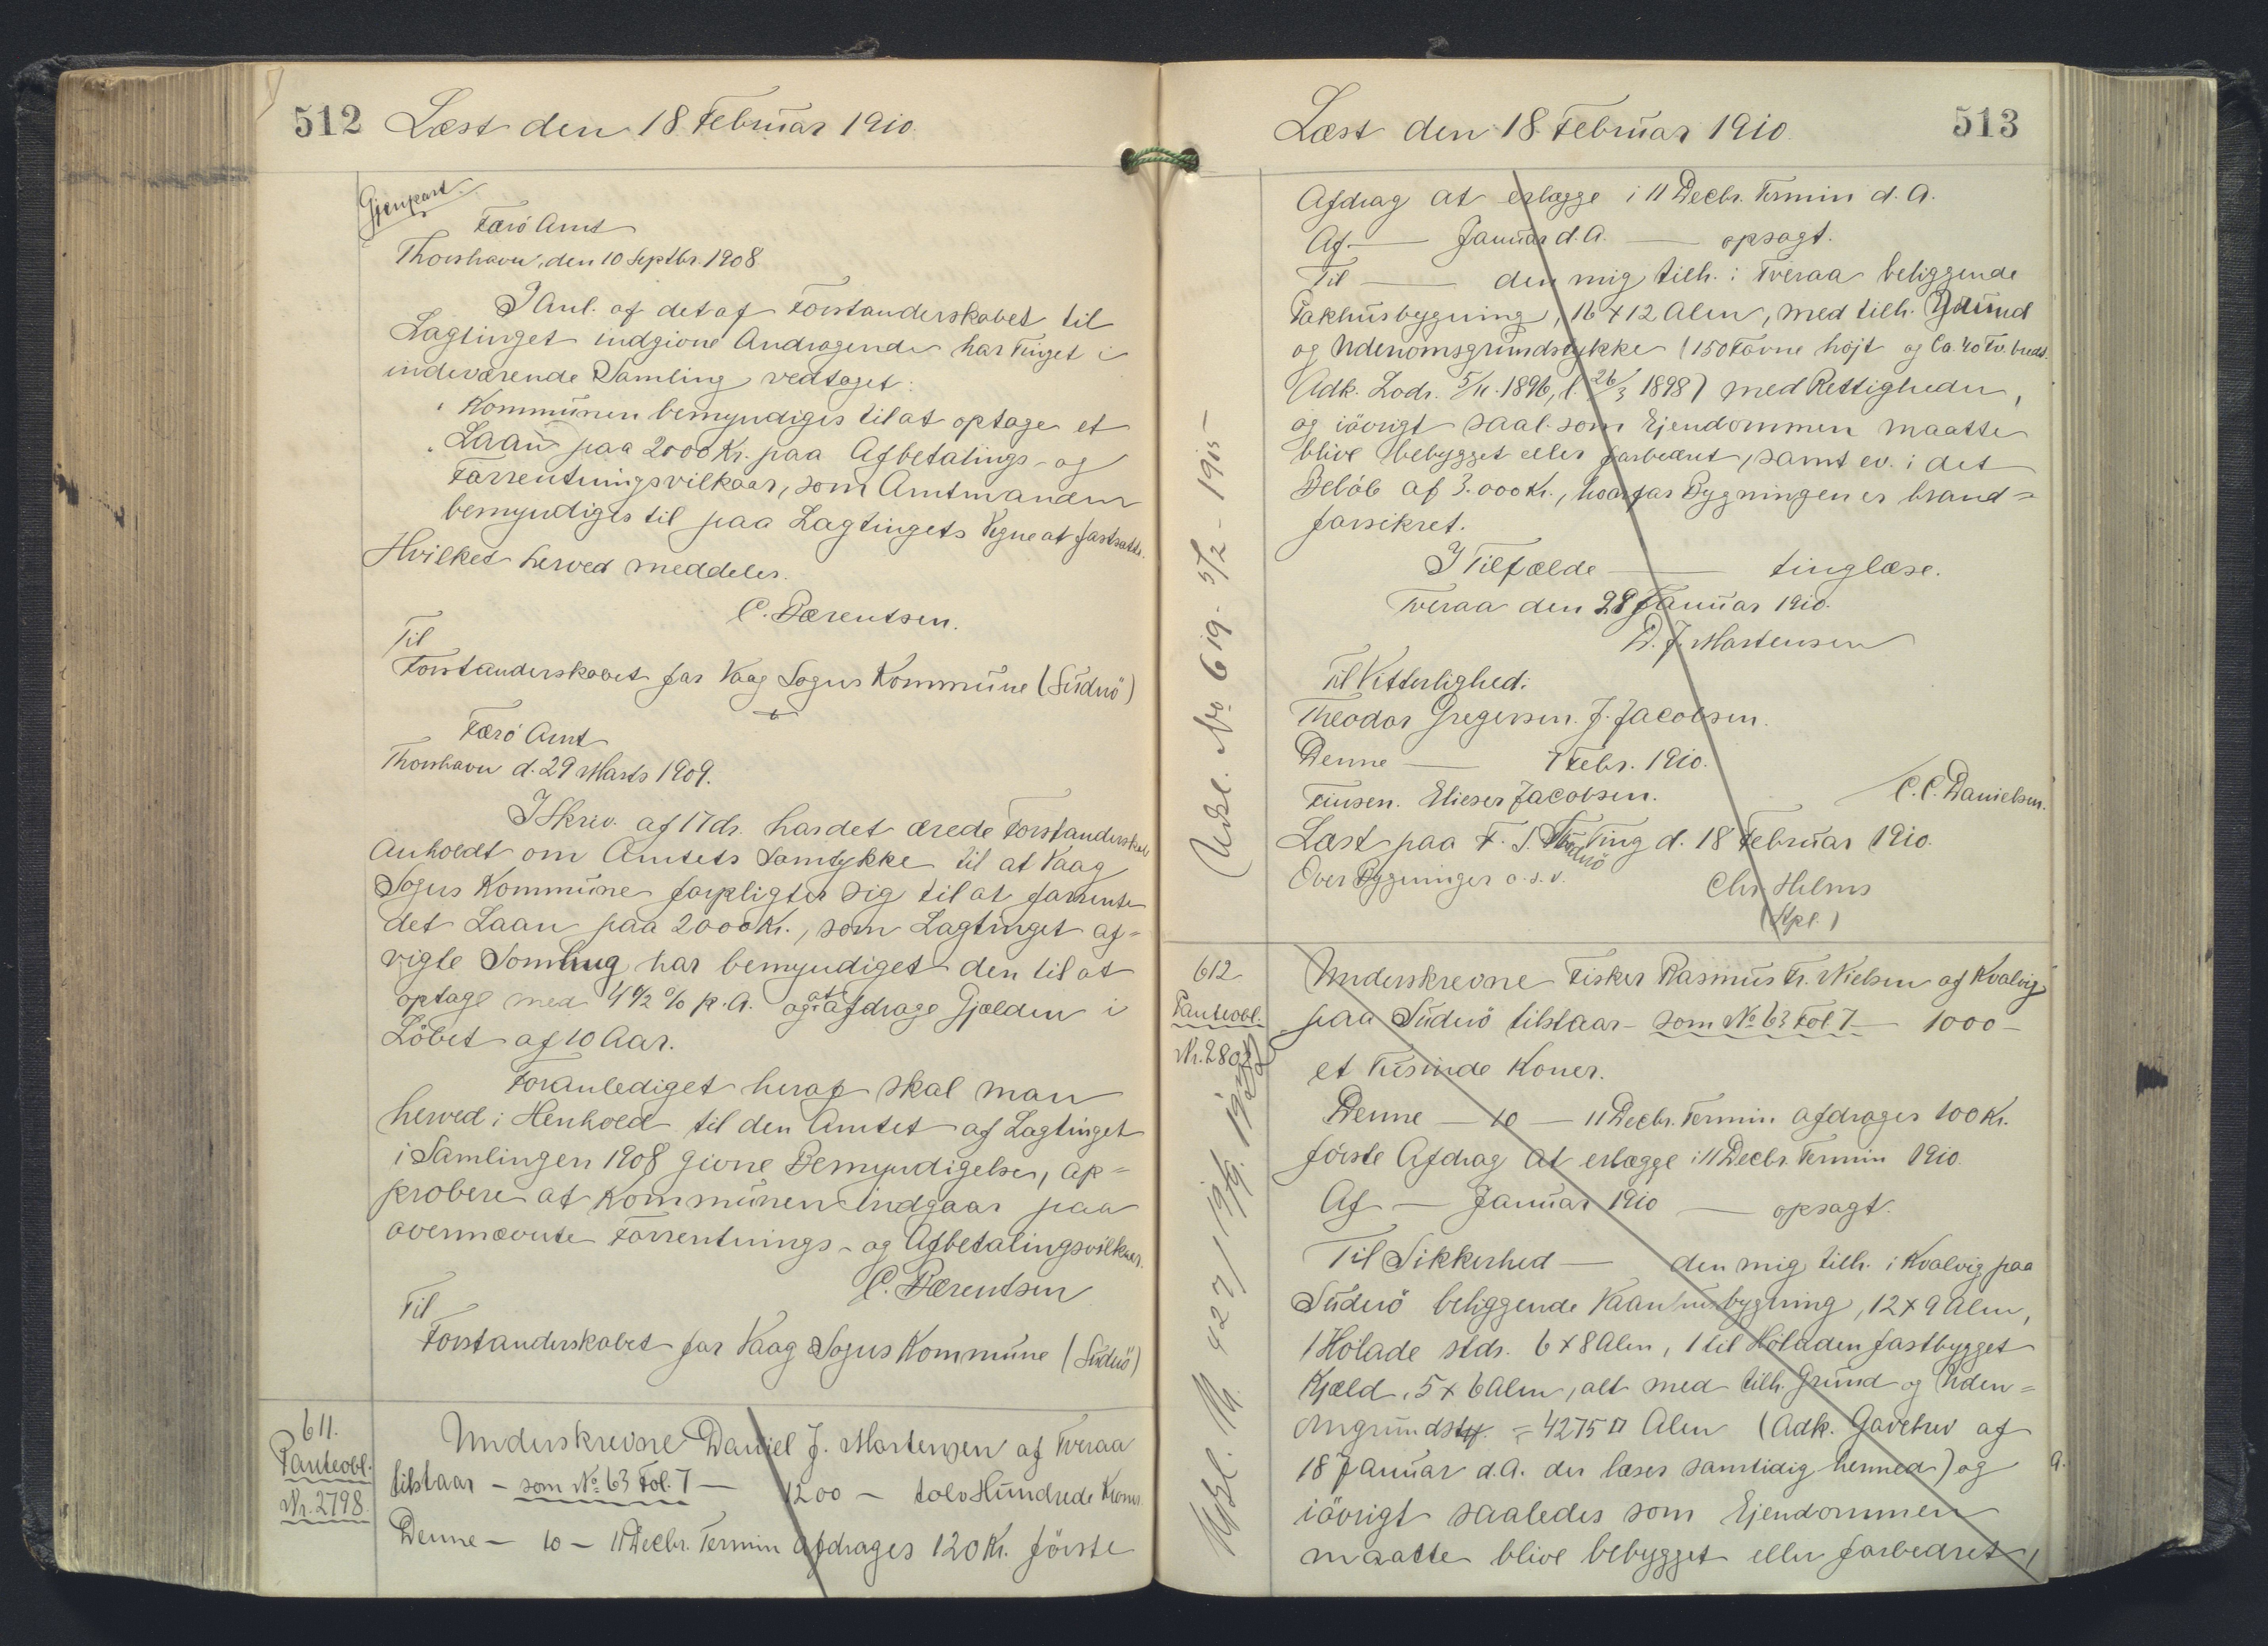 512 Læst den 18. Februar 1910.
Gjenpart.
Færö Amt
Thorshavn, den 10 Septbr. 1908
I Anl. af det af Forstanderskabet til
Lagtinget indgivne Andragende har Tinget i
indeværende Samling vedtaget:
"Kommunen bemyndiges til at optage et
"Laan paa 2000 Kr. paa Afbetalings- og
Forrentningsvilkaar, som Amtmanden
bemyndiges til paa Lagtingets Vegne at fastsætte.
Hvilket herved meddeles.
C. Bærentsen.
Til
Forstanderskabet for Vaag Sogns Kommune (Suderö)
Færö Amt
Thorshavn d. 29 Marts 1909.
I Skriv. af 17 ds. har det ærede Forstanderskab
anholdt om Amtets Samtykke til at Vaag
Sogns Kommune forpligter sig til at forrente
det Laan paa 2000 Kr., som Lagtinget af-
vigte Samling har bemyndiget den til at
optage med 4 1/2 % p. A. og at afdrage Gjælden i
Löbet af 10 Aar.
Foranlediget heraf skal man
herved i Henhold til den Amtet af Lagtinget
i Samlingen 1908 givne Bemyndigelse, ap-
probere at Kommunen indgaar paa
ovennævnte Forrentnings- og Afbetalingsvilkaar.
C. Bærentsen
Til
Forstanderskabet for Vaag Sogns Kommune (Suderö)
611.
Panteobl.
Nr. 2798.
Underskrevne Daniel J. Mortensen af Tveraa
tilstaar - som No 63 Fol. 7 - 1200 - tolv Hundrede Kroner.
Denne - 10 - 11 Decbr. Termin afdrages 120 Kr. förste
Læst den 18. Februar 1910. 513
Afdrag at erlægge i 11 Decbr. Termin d. A.
Af - Januar d. A. - opsagt.
Til - den mig tilh. i Tveraa beliggende
Pakhusbygning, 16 x 12 Alen, med tilh. Grund
og Udenomsgrundstykke (150 Favne höjt og Ca. 40 Fv. bredt.
Adk. Lods. 5/11. 1896, l. 26/3 1898) med Rettigheder,
og iövrigt saal. som Ejendommen maatte
blive bebygget eller forbedret, samt ev. i det
Belöb af 3.000 Kr., hvorfor Bygningen er brand-
forsikret.
I Tilfælde - tinglæse.
Tveraa den 28 Januar 1910.
D. J. Mortensen
Til Vitterlighed:
Theodor Gregersen. J. Jacobsen.
Denne - 7 Febr. 1910.
Finsen. Elieser Jacobsen. C. C. Danielsen.
Læst paa F. S. Suderö Ting d. 18 Februar 1910.
Over Bygninger o. s. v.
Chr. Helms
(Stpl.)
Udsl. No 619 - 5/2 - 1915 -
612
Panteobl.
Nr. 2802
Underskrevne Fisker Rasmus Fr. Nielsen af Kvalvig
paa Suderö tilstaar - som No 63 Fol. 7 - 1000 -
et Tusinde Koner.
Denne - 10 - 11 Decbr. Termin afdrages 100 Kr.
förste Afdrag at erlægge i 11 Decbr. Termin 1910.
Af - Januar 1910 - opsagt.
Til Sikkerhed - den mig tilh. i Kvalvig paa
Suderö beliggende Vaanhusbygning, 12 x 9 Alen,
1 Hölade stds. 6 x 8 Alen, 1 til Höladen fastbygget
Kjæld. 5 x 6 Alen, alt med tilh. Grund og Uden-
omgrundst. = 4275 □ Alen (Adk. Gavebrev af
18 Januar d. A. der læses samtidig hermed) og
iövrigt saaledes som Ejendommen
maatte blive bebygget eller forbedret,